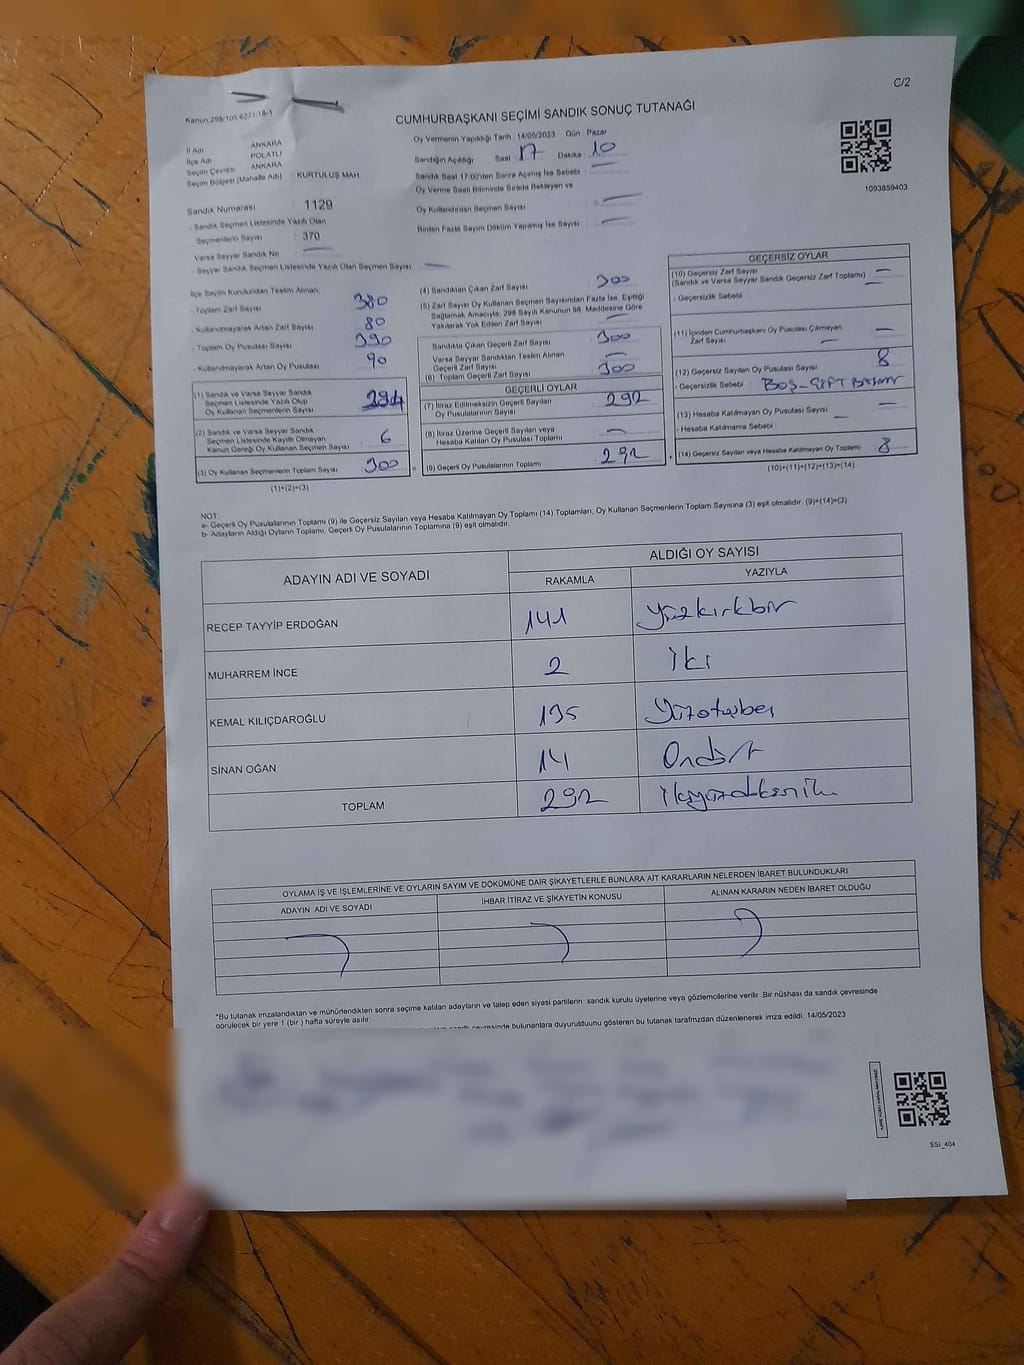 C/2
Kanun:298/105,6271/18-1
CUMHURBAŞKANI SEÇİMİ SANDIK SONUÇ TUTANAĞI
İl Adı ANKARA
İlçe Adı POLATLI
Seçim Çevresi ANKARA
Seçim Bölgesi (Mahalle Adı) : KURTULUŞ MAH.
Sandık Numarası : 1129
- Sandık Seçmen Listesinde Yazılı Olan
Seçmenlerin Sayısı : 370
Varsa Seyyar Sandık No : —
- Seyyar Sandık Seçmen Listesinde Yazılı Olan Seçmen Sayısı : —
Oy Vermenin Yapıldığı Tarih : 14/05/2023 Gün : Pazar
Sandığın Açıldığı Saat : 17 Dakika : 10
Sandık Saat 17:00'den Sonra Açılmış İse Sebebi : —
Oy Verme Saati Bitiminde Sırada Bekleyen ve
Oy Kullandırılan Seçmen Sayısı : —
Birden Fazla Sayım Döküm Yapılmış İse Sayısı : —
1093859403
İlçe Seçim Kurulundan Teslim Alınan;
- Toplam Zarf Sayısı 380
- Kullanılmayarak Artan Zarf Sayısı 80
- Toplam Oy Pusulası Sayısı 390
- Kullanılmayarak Artan Oy Pusulası 90
(1) Sandık ve Varsa Seyyar Sandık
Seçmen Listesinde Yazılı Olup
Oy Kullanan Seçmenlerin Sayısı 294
(2) Sandık ve Varsa Seyyar Sandık
Seçmen Listesinde Kayıtlı Olmayan
Kanun Gereği Oy Kullanan Seçmen Sayısı 6
(3) Oy Kullanan Seçmenlerin Toplam Sayısı 300
(1)+(2)=(3)
(4) Sandıktan Çıkan Zarf Sayısı 300
(5) Zarf Sayısı Oy Kullanan Seçmen Sayısından Fazla İse, Eşitliği
Sağlamak Amacıyla; 298 Sayılı Kanunun 98. Maddesine Göre
Yakılarak Yok Edilen Zarf Sayısı —
Sandıkta Çıkan Geçerli Zarf Sayısı 300
Varsa Seyyar Sandıktan Teslim Alınan
Geçerli Zarf Sayısı —
(6) Toplam Geçerli Zarf Sayısı 300
GEÇERLİ OYLAR
(7) İtiraz Edilmeksizin Geçerli Sayılan
Oy Pusulalarının Sayısı 292
(8) İtiraz Üzerine Geçerli Sayılan veya
Hesaba Katılan Oy Pusulası Toplamı —
(9) Geçerli Oy Pusulalarının Toplamı 292
GEÇERSİZ OYLAR
(10) Geçersiz Zarf Sayısı —
(Sandık ve Varsa Seyyar Sandık Geçersiz Zarf Toplamı) —
- Geçersizlik Sebebi :
(11) İçinden Cumhurbaşkanı Oy Pusulası Çıkmayan
Zarf Sayısı —
(12) Geçersiz Sayılan Oy Pusulası Sayısı 8
- Geçersizlik Sebebi : BOŞ-ÇİFT BASIM
(13) Hesaba Katılmayan Oy Pusulası Sayısı —
- Hesaba Katılmama Sebebi :
(14) Geçersiz Sayılan veya Hesaba Katılmayan Oy Toplamı 8
(10)+(11)+(12)+(13)=(14)
NOT:
a- Geçerli Oy Pusulalarının Toplamı (9) ile Geçersiz Sayılan veya Hesaba Katılmayan Oy Toplamı (14) Toplamları, Oy Kullanan Seçmenlerin Toplam Sayısına (3) eşit olmalıdır. (9)+(14)=(3)
b- Adayların Aldığı Oyların Toplamı, Geçerli Oy Pusulalarının Toplamına (9) eşit olmalıdır.
ADAYIN ADI VE SOYADI ALDIĞI OY SAYISI
RAKAMLA YAZIYLA
RECEP TAYYİP ERDOĞAN 141 Yüzkırkbir
MUHARREM İNCE 2 İki
KEMAL KILIÇDAROĞLU 135 Yüzotuzbeş
SİNAN OĞAN 14 Ondört
TOPLAM 292 ikiyüzdoksaniki
OYLAMA İŞ VE İŞLEMLERİNE VE OYLARIN SAYIM VE DÖKÜMÜNE DAİR ŞİKAYETLERLE BUNLARA AİT KARARLARIN NELERDEN İBARET BULUNDUKLARI
ADAYIN ADI VE SOYADI İHBAR İTİRAZ VE ŞİKAYETİN KONUSU ALINAN KARARIN NEDEN İBARET OLDUĞU
*Bu tutanak imzalandıktan ve mühürlendikten sonra seçime katılan adayların ve talep eden siyasi partilerin sandık kurulu üyelerine veya gözlemcilerine verilir. Bir nüshası da sandık çevresinde
görülecek bir yere 1 (bir) hafta süreyle asılır.
sandık çevresinde bulunanlara duyurulduunu gösteren bu tutanak tarafımızdan düzenlenerek imza edildi. 14/05/2023
SSİ_404